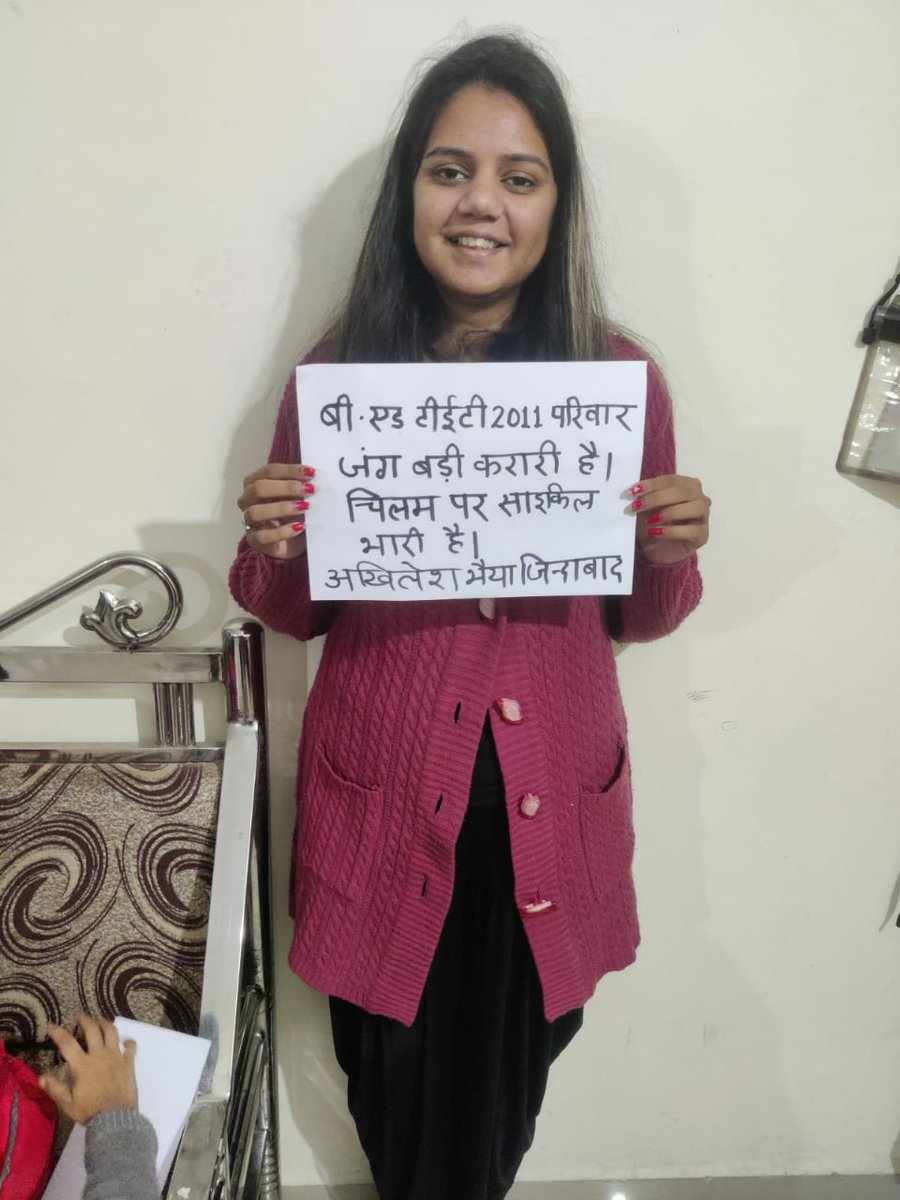 बी.एड टीईटी 2011 परिवार
जंग बड़ी करारी है।
चिलम पर साइकिल
भारी है।
अखिलेश भैया जिन्दाबाद